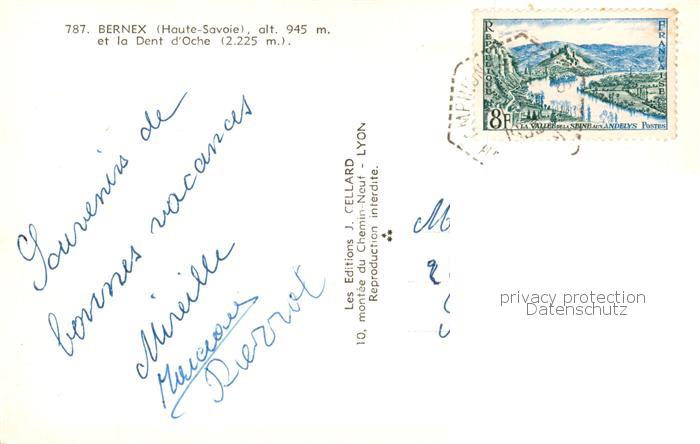 787. BERNEX (Haute-Savoie), alt. 945 m.
et la Dent d'Oche (2.225 m.).
REPUBLIQUE
FRANÇAISE
8F
LA VALLÉE DE LA SEINE AUX ANDELYS POSTES
Souvenirs de
bonnes vacances
Mireille
Pierrot
Les Editions J. CELLARD - LYON
10, montée du Chemin-Neuf
Reproduction interdite.
M
privacy protection
Datenschutz